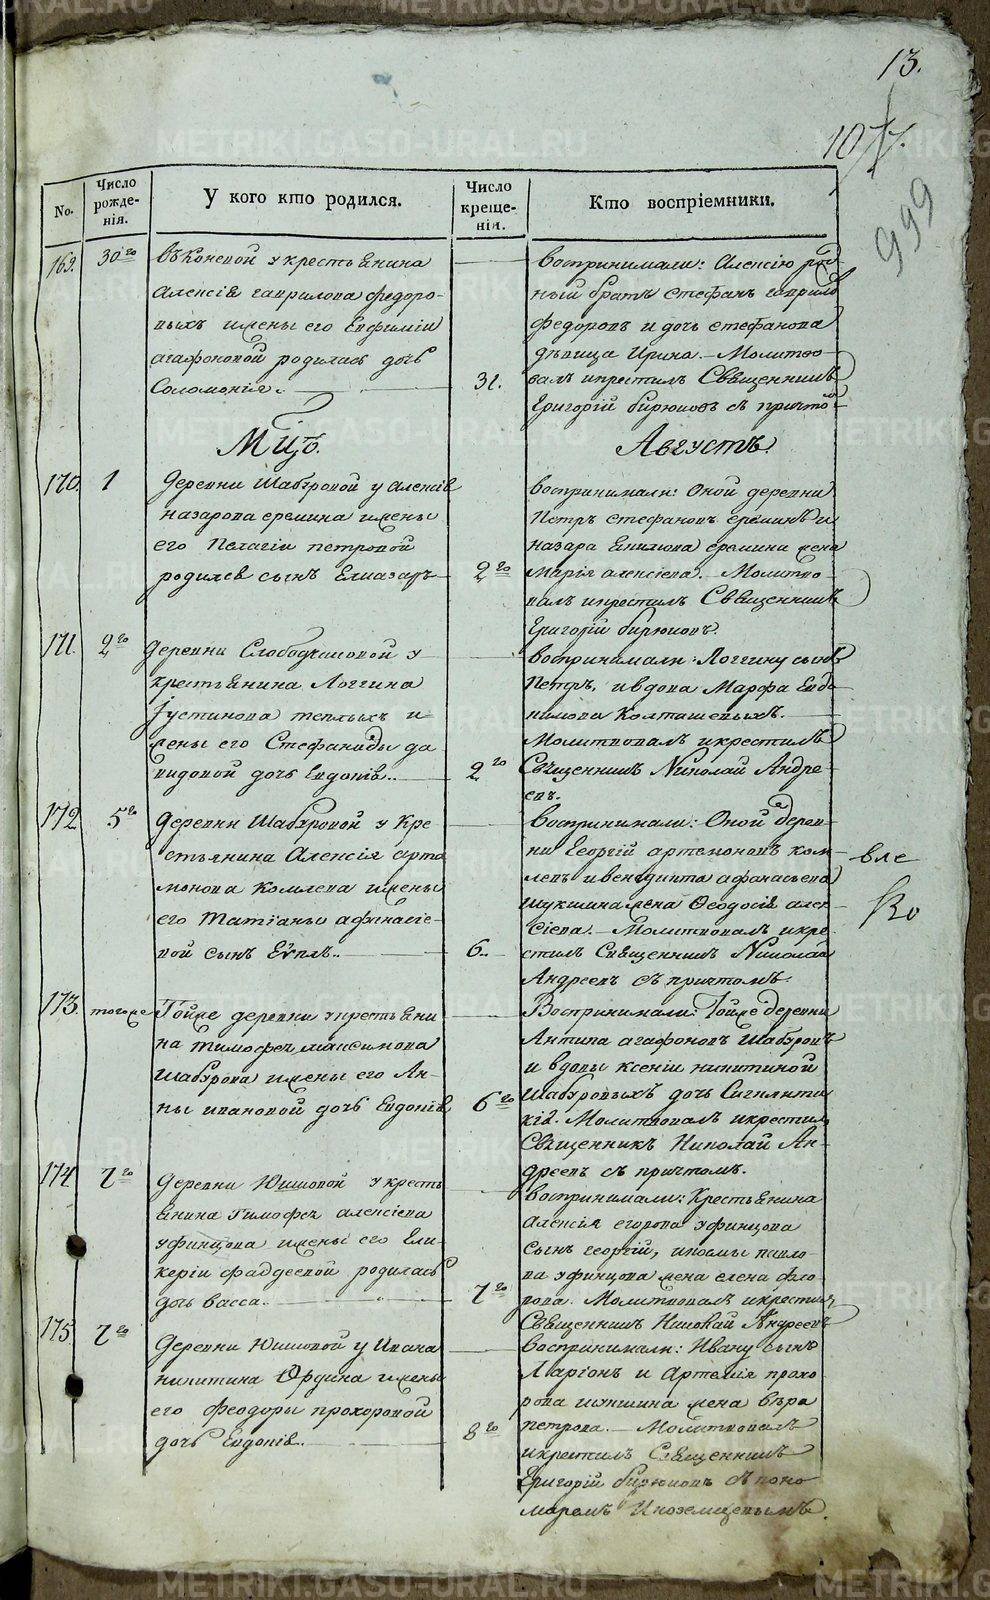 13.
107.
999
No.
Число рожде-нія.
У кого кто родился.
Число креще-ніи.
Кто воспріемники.
169. 30го
въ Коневой у крестьянина
Алексія гаврилова федоро-
выхъ и жены его Евфиміи
агафоновой родилась дочь
Соломонія.
31.
воспринимали: Алексію род-
ный братъ стефанъ гаврило
федоровъ и дочь стефанова
дѣвица Ирина. Молитво-
валъ и крестилъ Священникъ
Григорій бирюковъ съ причто
Мцъ. Августъ.
170. 1
деревни Шабуровой у Алексія
назарова еремина и жены
его Пелагіи петровой
родился сынъ Елиазаръ
2го
воспринимали: Оной деревни
Петръ стефановъ ереминъ и
назара еремина жена
Марія алексіева. Молитво-
валъ и крестилъ Священникъ
Григорій бирюковъ.
171. 2го
деревни у
крестьянина Логгина
Іустинова теплыхъ и
жены его Стефаниды да
видовой дочь Евдокія..
2го
воспринимали: Логгину сынъ
Петръ, и вдова Марфа
Колташевыхъ.
Молитвовалъ и крестилъ
Священникъ Николай Андре-
евъ.
172 5го
деревни Шабуровой у кре
стьянина Алексія арта
монова Комлева и жены
его Татіаны афанасіе-
вой сынъ Еѵплъ..
6..
воспринимали: Оной дерев-
ни Георгій артемоновъ ком-
левъ и венедикта афанасьева
щукшина жена Ѳеодосія алек-
сіева. Молитвовалъ и кре-
стилъ Священникъ Николай
Андреевъ съ причтомъ.
вле
Ко
173. тогоже
Тойже деревни у крестьяни
на тимофея максимова
Шабурова и жены его Ан-
ны ивановой дочь Евдокія
6го
Воспринимали: Тойже деревни
Антипа агафоновъ Шабуровъ
и вдовы ксеніи никитиной
Шабуровыхъ дочь
Молитвовалъ и крестилъ
Священникъ Николай Ан-
дреевъ съ причтомъ.
174 7го
деревни Юшковой у кресть
янина Тимофея алексіева
уфинцова и жены его Гли-
керіи фаддеевой родилась
дочь васса.
7го
воспринимали: Крестьянина
Алексія егорова уфинцова
сынъ георгій, и космы павло-
ва уфинцова жена елена фло-
рова. Молитвовалъ и крестилъ
Священникъ Николай Андреевъ
175. 7го
деревни Юшковой у Ивана
никитина Ордина и жены
его Феодоры прохоровой
дочь Евдокія..
8го
воспринимали: Ивану сынъ
Ларіонъ и Артемія прохо-
рова жена вѣра
петрова. Молитвовалъ
и крестилъ Священникъ
Григорій бирюковъ съ поно
маремъ Иноземцевымъ.
METRIKI.GASO-URAL.RU